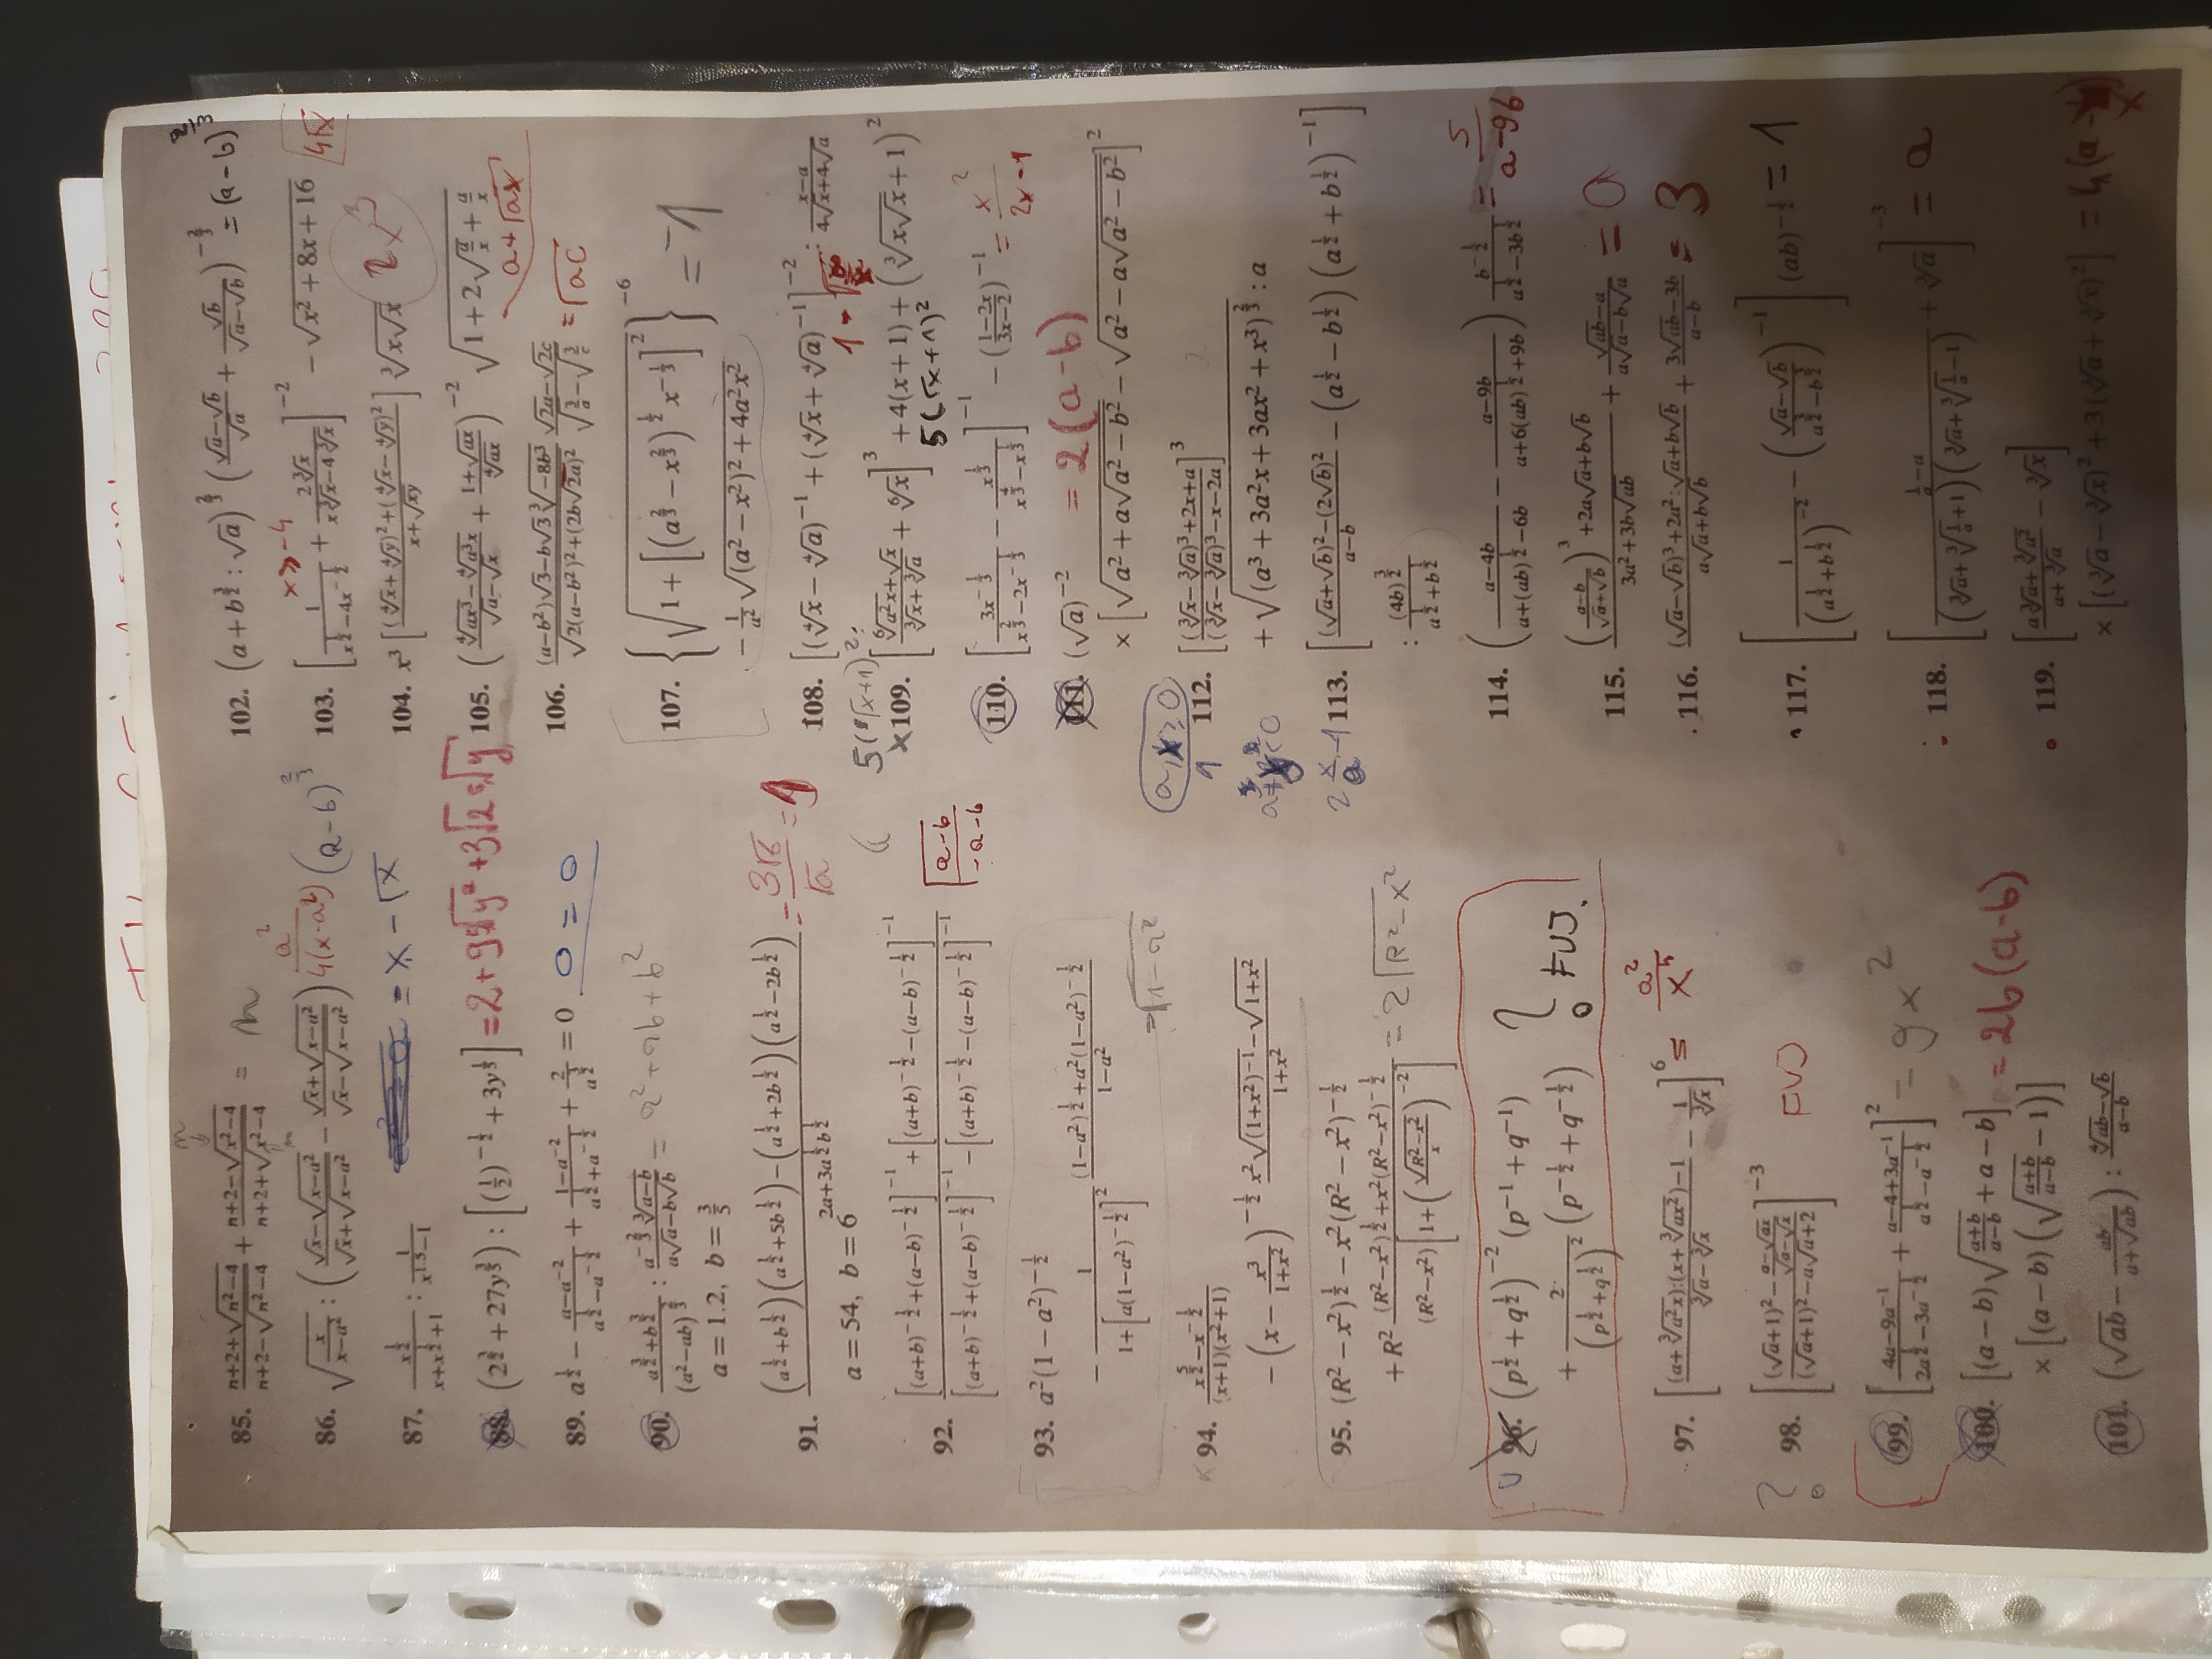 85. \frac{n+2+\sqrt{n^2-4}}{n+2-\sqrt{n^2-4}} + \frac{n+2-\sqrt{n^2-4}}{n+2+\sqrt{n^2-4}} = n
86. \sqrt{\frac{x}{x-a^2}} : \left(\frac{\sqrt{x}-\sqrt{x-a^2}}{\sqrt{x}+\sqrt{x-a^2}} - \frac{\sqrt{x}+\sqrt{x-a^2}}{\sqrt{x}-\sqrt{x-a^2}}\right) \frac{a^2}{4(x-a^2)} (a-b)^{\frac{2}{3}}
87. \frac{x^{\frac{1}{2}}}{x+x^{\frac{1}{2}}+1} : \frac{1}{x^{1.5}-1} = x-\sqrt{x}
88. (2^{\frac{3}{2}}+27y^{\frac{3}{5}}) : \left[\left(\frac{1}{2}\right)^{-\frac{1}{2}}+3y^{\frac{1}{5}}\right] = 2+9\sqrt[5]{y^2}+3\sqrt{2}\sqrt[5]{y}
89. a^{\frac{1}{2}} - \frac{a-a^{-2}}{a^{\frac{1}{2}}-a^{-\frac{1}{2}}} + \frac{1-a^{-2}}{a^{\frac{1}{2}}+a^{-\frac{1}{2}}} + \frac{2}{a^{\frac{3}{2}}} = 0 0 = 0
90. \frac{a^{\frac{3}{2}}+b^{\frac{3}{2}}}{(a^2-ab)^{\frac{2}{3}}} : \frac{a^{-\frac{2}{3}}\sqrt[3]{a-b}}{a\sqrt{a}-b\sqrt{b}} = a^2+ab+b^2
a = 1.2, b = \frac{3}{5}
91. \frac{(a^{\frac{1}{2}}+b^{\frac{1}{2}})(a^{\frac{1}{2}}+5b^{\frac{1}{2}})-(a^{\frac{1}{2}}+2b^{\frac{1}{2}})(a^{\frac{1}{2}}-2b^{\frac{1}{2}})}{2a+3a^{\frac{1}{2}}b^{\frac{1}{2}}}
a = 54, b = 6
92. \frac{[(a+b)^{-\frac{1}{2}}+(a-b)^{-\frac{1}{2}}]^{-1}+[(a+b)^{-\frac{1}{2}}-(a-b)^{-\frac{1}{2}}]^{-1}}{[(a+b)^{-\frac{1}{2}}+(a-b)^{-\frac{1}{2}}]^{-1}-[(a+b)^{-\frac{1}{2}}-(a-b)^{-\frac{1}{2}}]^{-1}}
93. a^2(1-a^2)^{-\frac{1}{2}}
- \frac{1}{1+[a(1-a^2)^{-\frac{1}{2}}]^2} \frac{(1-a^2)^{\frac{1}{2}}+a^2(1-a^2)^{-\frac{1}{2}}}{1-a^2}
94. \frac{x^{\frac{5}{2}}-x^{-\frac{1}{2}}}{(x+1)(x^2+1)}
- \left(x-\frac{x^3}{1+x^2}\right)^{-\frac{1}{2}} \frac{x^2\sqrt{(1+x^2)^{-1}}-\sqrt{1+x^2}}{1+x^2}
95. (R^2-x^2)^{\frac{1}{2}} - x^2(R^2-x^2)^{-\frac{1}{2}}
+ R^2 \frac{(R^2-x^2)^{\frac{1}{2}}+x^2(R^2-x^2)^{-\frac{1}{2}}}{(R^2-x^2)\left[1+\left(\frac{\sqrt{R^2-x^2}}{x}\right)^{-2}\right]} = 2\sqrt{R^2-x^2}
96. (p^{\frac{1}{2}}+q^{\frac{1}{2}})^{-2}(p^{-1}+q^{-1})
+ \frac{2}{(p^{\frac{1}{2}}+q^{\frac{1}{2}})^3}(p^{-\frac{1}{2}}+q^{-\frac{1}{2}}) ? FUJ.
97. \left[\frac{(a+\sqrt[3]{a^2x}):(x+\sqrt[3]{ax^2})-1}{\sqrt[3]{a}-\sqrt[3]{x}} - \frac{1}{\sqrt[3]{x}}\right]^6 =
98. \left[\frac{(\sqrt{a}+1)^2-\frac{a-\sqrt{ax}}{\sqrt{a}-\sqrt{x}}}{(\sqrt{a}+1)^2-a\sqrt{a}+2}\right]^{-3} FUJ
99. \left[\frac{4a-9a^{-1}}{2a^{\frac{1}{2}}-3a^{-\frac{1}{2}}} + \frac{a-4+3a^{-1}}{a^{\frac{1}{2}}-a^{-\frac{1}{2}}}\right]^2 = 9x^2
100. \left[(a-b)\sqrt{\frac{a+b}{a-b}}+a-b\right] = 2b(a-b)
× \left[(a-b)\left(\sqrt{\frac{a+b}{a-b}}-1\right)\right]
101. \left(\sqrt{ab}-\frac{ab}{a+\sqrt{ab}}\right) : \frac{\sqrt[4]{ab}-\sqrt{b}}{a-b}
102. (a+b^{\frac{3}{2}}:\sqrt{a})^{\frac{2}{3}}\left(\frac{\sqrt{a}-\sqrt{b}}{\sqrt{a}}+\frac{\sqrt{b}}{\sqrt{a}-\sqrt{b}}\right)^{-\frac{2}{3}} = (a-b)^{\frac{2}{3}}
x ≥ -4
103. \left[\frac{1}{x^{\frac{1}{2}}-4x^{-\frac{1}{2}}}+\frac{2\sqrt[3]{x}}{x\sqrt[3]{x}-4\sqrt[3]{x}}\right]^{-2} - \sqrt{x^2+8x+16}
104. x^3\left[\frac{(\sqrt[4]{x}+\sqrt[4]{y})^2+(\sqrt[4]{x}-\sqrt[4]{y})^2}{x+\sqrt{xy}}\right]\sqrt[3]{x\sqrt{x}} 2x^3
105. \left(\frac{\sqrt[4]{ax^3}-\sqrt[4]{a^3x}}{\sqrt{a}-\sqrt{x}}+\frac{1+\sqrt{ax}}{\sqrt[4]{ax}}\right)^{-2}\sqrt{1+2\sqrt{\frac{a}{x}}+\frac{a}{x}}
a+\sqrt{ax}
106. \frac{(a-b^2)\sqrt{3}-b\sqrt{3}\sqrt[3]{-8b^3}}{\sqrt{2(a-b^2)^2+(2b\sqrt{2a})^2}} \frac{\sqrt{2a}-\sqrt{2c}}{\sqrt{\frac{3}{a}}-\sqrt{\frac{3}{c}}} = \sqrt{ac}
107. \left\{\sqrt{1+\left[(a^{\frac{2}{3}}-x^{\frac{2}{3}})^{\frac{1}{2}}x^{-\frac{1}{3}}\right]^2}\right\}^{-6} = -1
- \frac{1}{a^2}\sqrt{(a^2-x^2)^2+4a^2x^2}
108. \left[(\sqrt[4]{x}-\sqrt[4]{a})^{-1}+(\sqrt[4]{x}+\sqrt[4]{a})^{-1}\right]^{-2} : \frac{x-a}{4\sqrt{x}+4\sqrt{a}}
109. \left[\frac{\sqrt[6]{a^2x}+\sqrt{x}}{\sqrt[3]{x}+\sqrt[3]{a}}+\sqrt[6]{x}\right]^3+4(x+1)+(\sqrt[3]{x\sqrt{x}}+1)^2
5(\sqrt{x}+1)^2
110. \left[\frac{3x^{-\frac{1}{3}}}{x^{\frac{2}{3}}-2x^{-\frac{1}{3}}}-\frac{x^{\frac{1}{3}}}{x^{\frac{4}{3}}-x^{\frac{1}{3}}}\right]^{-1}-\left(\frac{1-2x}{3x-2}\right)^{-1} = \frac{x^2}{2x-1}
111. (\sqrt{a})^{-2} = 2(a-b)
× \left[\sqrt{a^2+a\sqrt{a^2-b^2}}-\sqrt{a^2-a\sqrt{a^2-b^2}}\right]^2
112. \left[\frac{(\sqrt[3]{x}-\sqrt[3]{a})^3+2x+a}{(\sqrt[3]{x}-\sqrt[3]{a})^3-x-2a}\right]^3
+ \sqrt{(a^3+3a^2x+3ax^2+x^3)^{\frac{2}{3}}} : a
113. \left[\frac{(\sqrt{a}+\sqrt{b})^2-(2\sqrt{b})^2}{a-b}-(a^{\frac{1}{2}}-b^{\frac{1}{2}})(a^{\frac{1}{2}}+b^{\frac{1}{2}})^{-1}\right]
: \frac{(4b)^{\frac{3}{2}}}{a^{\frac{1}{2}}+b^{\frac{1}{2}}}
114. \left(\frac{a-4b}{a+(ab)^{\frac{1}{2}}-6b}-\frac{a-9b}{a+6(ab)^{\frac{1}{2}}+9b}\right)\frac{b^{-\frac{1}{2}}}{a^{\frac{1}{2}}-3b^{\frac{1}{2}}} = \frac{5}{a-9b}
115. \frac{\left(\frac{a-b}{\sqrt{a}+\sqrt{b}}\right)^3+2a\sqrt{a}+b\sqrt{b}}{3a^2+3b\sqrt{ab}}+\frac{\sqrt{ab}-a}{a\sqrt{a}-b\sqrt{a}} = 0
116. \frac{(\sqrt{a}-\sqrt{b})^3+2a^2:\sqrt{a}+b\sqrt{b}}{a\sqrt{a}+b\sqrt{b}}+\frac{3\sqrt{ab}-3b}{a-b} = 3
117. \left[\frac{1}{(a^{\frac{1}{2}}+b^{\frac{1}{2}})^{-2}}-\left(\frac{\sqrt{a}-\sqrt{b}}{a^{\frac{3}{2}}-b^{\frac{3}{2}}}\right)^{-1}\right](ab)^{-\frac{1}{2}} = 1
118. \left[\frac{\frac{1}{a}-a}{(\sqrt[3]{a}+\sqrt[3]{\frac{1}{a}}+1)(\sqrt[3]{a}+\sqrt[3]{\frac{1}{a}}-1)}+\sqrt[3]{a}\right]^{-3} = a
119. \left[\frac{a\sqrt[3]{a}+\sqrt[3]{a^2}}{a+\sqrt[3]{a}}-\sqrt[3]{x}\right]
× \left[(\sqrt[3]{a}-\sqrt[3]{x})^2+3(\sqrt[3]{a}+\sqrt[3]{x})^2\right]